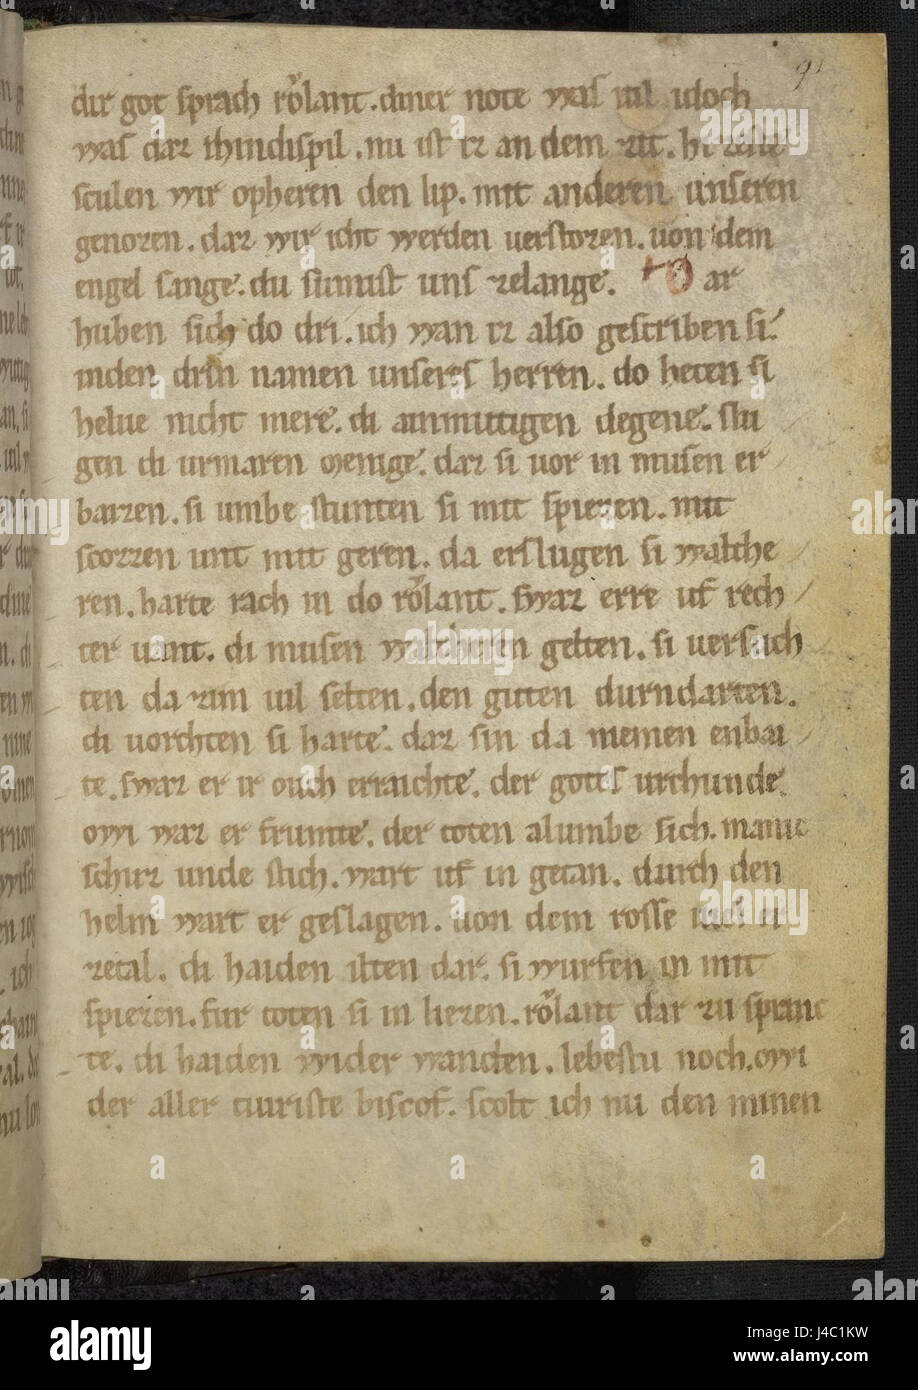 91
dir got sprach rͦlant. diner note was uil. idoch
was daz ih​in dispil. nu ist iz an dem zit. hi
sculen wir opheren den lip. mit anderen unseren
genozen. daz wir icht werden uerstozen. uon dem
engel sange. du sumist uns zelange. Dar
huben sich do dri. ich wan iz also gescriben si.
inden drin namen unseres herren. do heten si
helue nicht mere. di ainmutigen degene. slu
gen di urmaren menige. daz si uor in musen er
baizen. si umbe stunten si mit spiezen. mit
scozzen unt mit geren. da erslugen si walthe
ren. harte rach in do rͦlant. swaz erre uf rech
ter uant. di musen waltheren gelten. si uersuch
ten da zim uil selten. den guten durndarten.
di uorchten si harte. daz sin da niemen enbai
te. swaz er ir ouch erraichte. der gotes urchunde.
owi waz er frumte. der toten alumbe sich. manic
schuz unde stich. wart uf in getan. durch den
helm wart er geslagen. uon dem rosse uiel er
zetal. di haiden ilten dar. si wurfen in mit
spiezen. fur toten si in liezen. rͦlant dar zu spranc
te. di haiden wider wanden. lebestu noch. owi
der aller tiuriste biscof. scolt ich nu den minen
alamy
J4C1KW
www.alamy.com